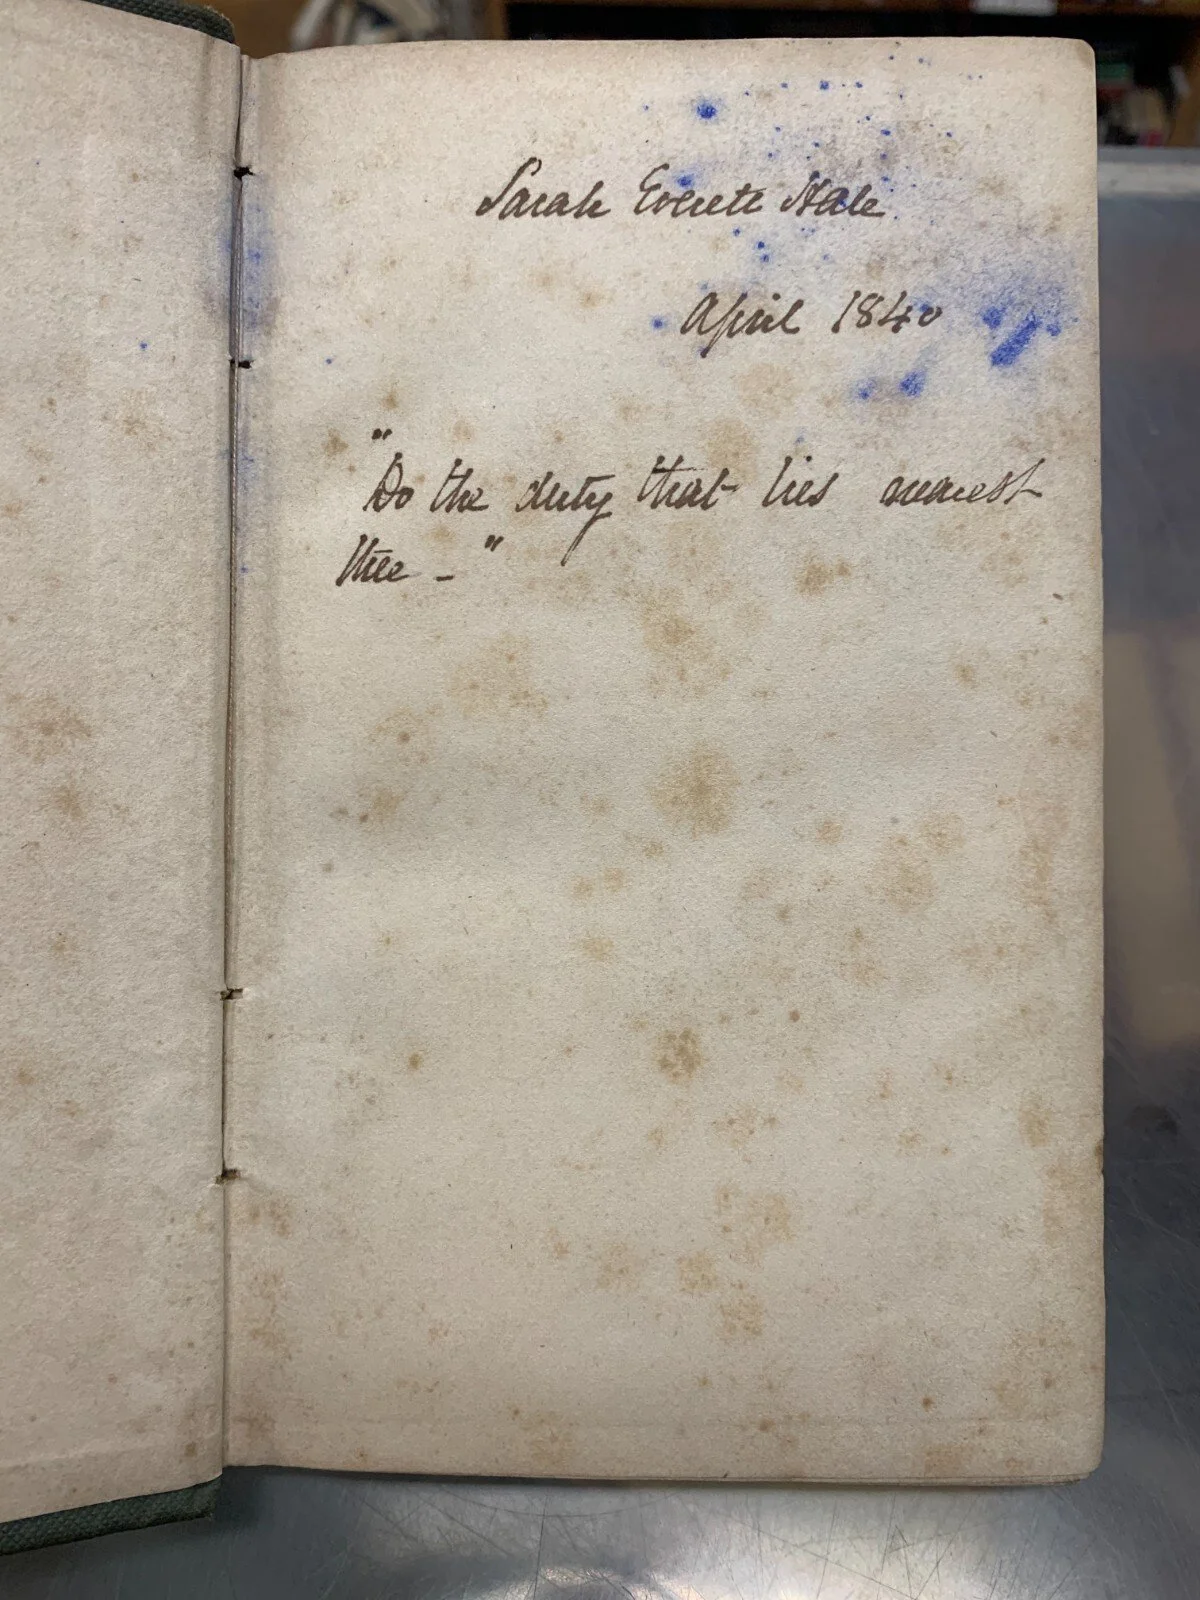 Sarah Everett Hale
April 1840
"Do the duty that lies nearest
thee - "